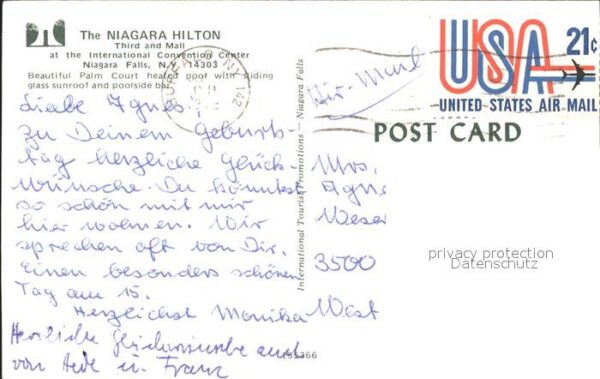 The NIAGARA HILTON
Third and Mall
at the International Convention Center
Niagara Falls, N.Y. 14303
Beautiful Palm Court heated pool with sliding
glass sunroof and poolside bar.
Liebe Agnes
zu Deinem Geburts-
tag herzliche Glück-
wünsche. Du könntest
so schön mit mir
hier wohnen. Wir
sprechen oft von Dir.
Einen besonders schönen
Tag am 15.
Herzlichst Monika
Herzliche Glückwünsche auch
von u. Franz
International Tourist Promotions — Niagara Falls
Air-Mail
USA 21c
UNITED STATES AIR MAIL
POST CARD
Mrs.
Agne
Weser
3500
West
privacy protection
Datenschutz